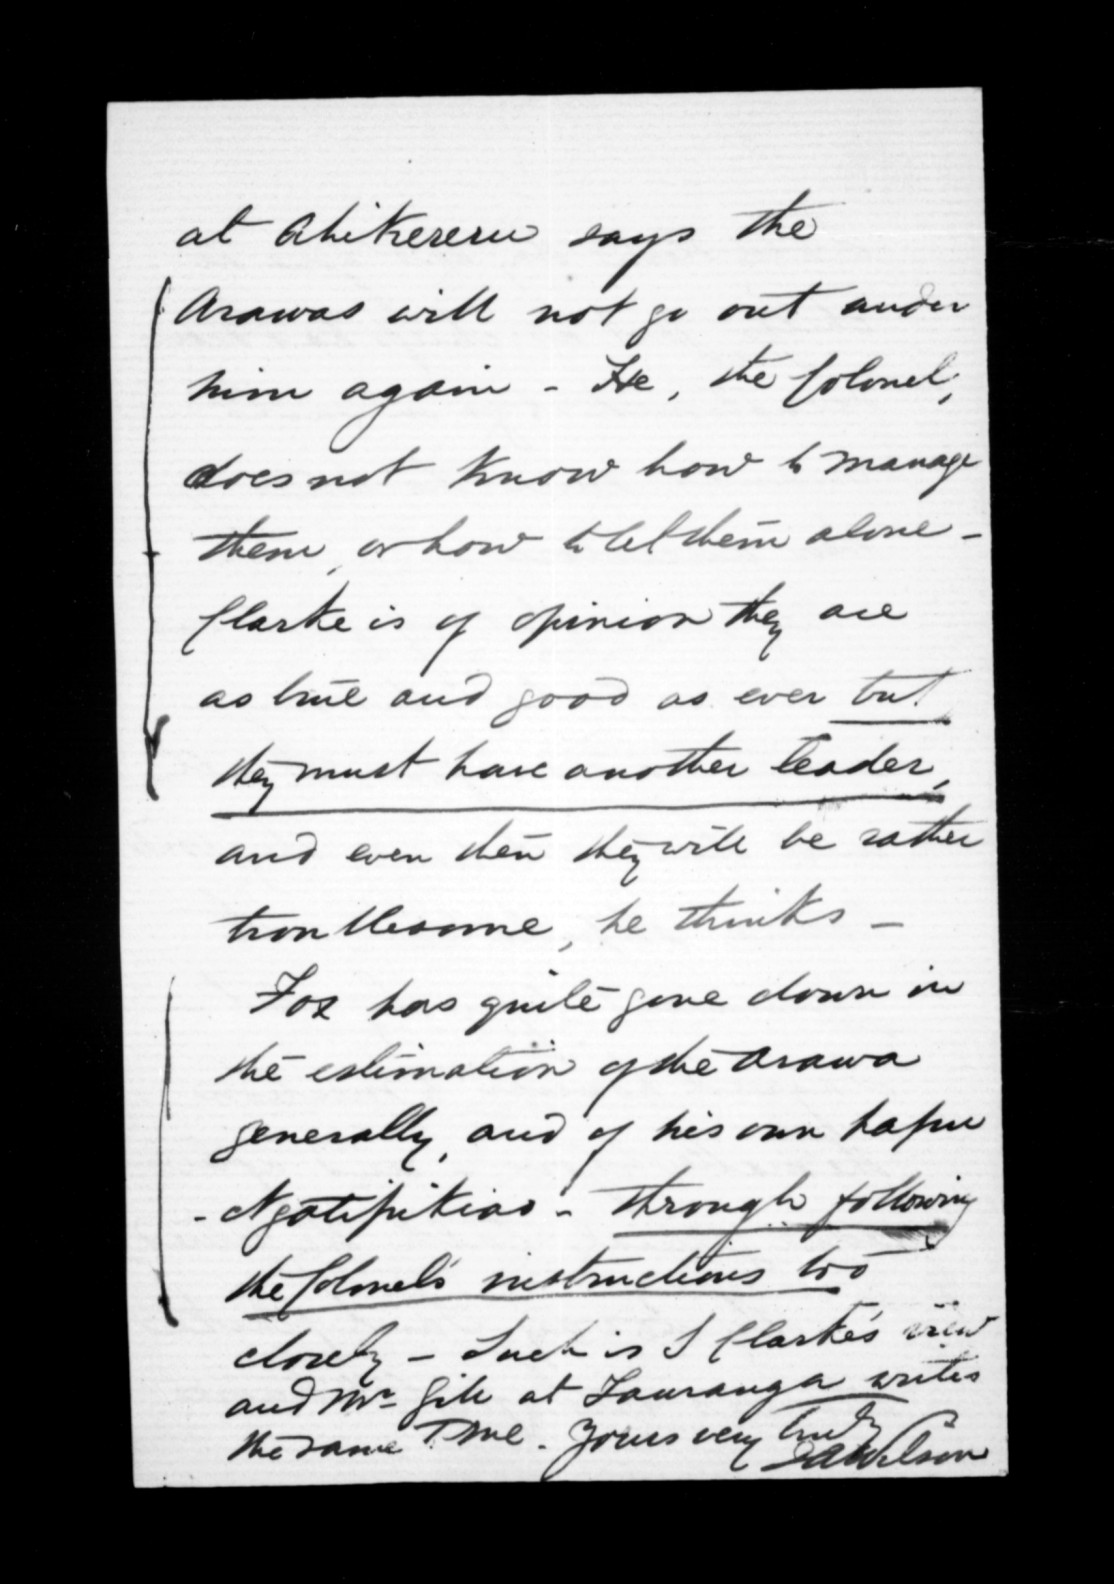 at Ahikereru says the
Arawas will not go out under
him again - He, the Colonel,
does not know how to manage
them, or how to let them alone -
Clarke is of opinion they are
as true and good as ever but
they must have another leader,
and even then they will be rather
troublesome, he thinks -
Fox has quite gone down in
the estimation of the Arawa
generally, and of his own hapu
- Ngatipikiao - through following
the Colonel's instructions too
closely - Such is Clarke's view
and Mr Gill at Tauranga writes
the same to me. Yours very truly
JA Wilson